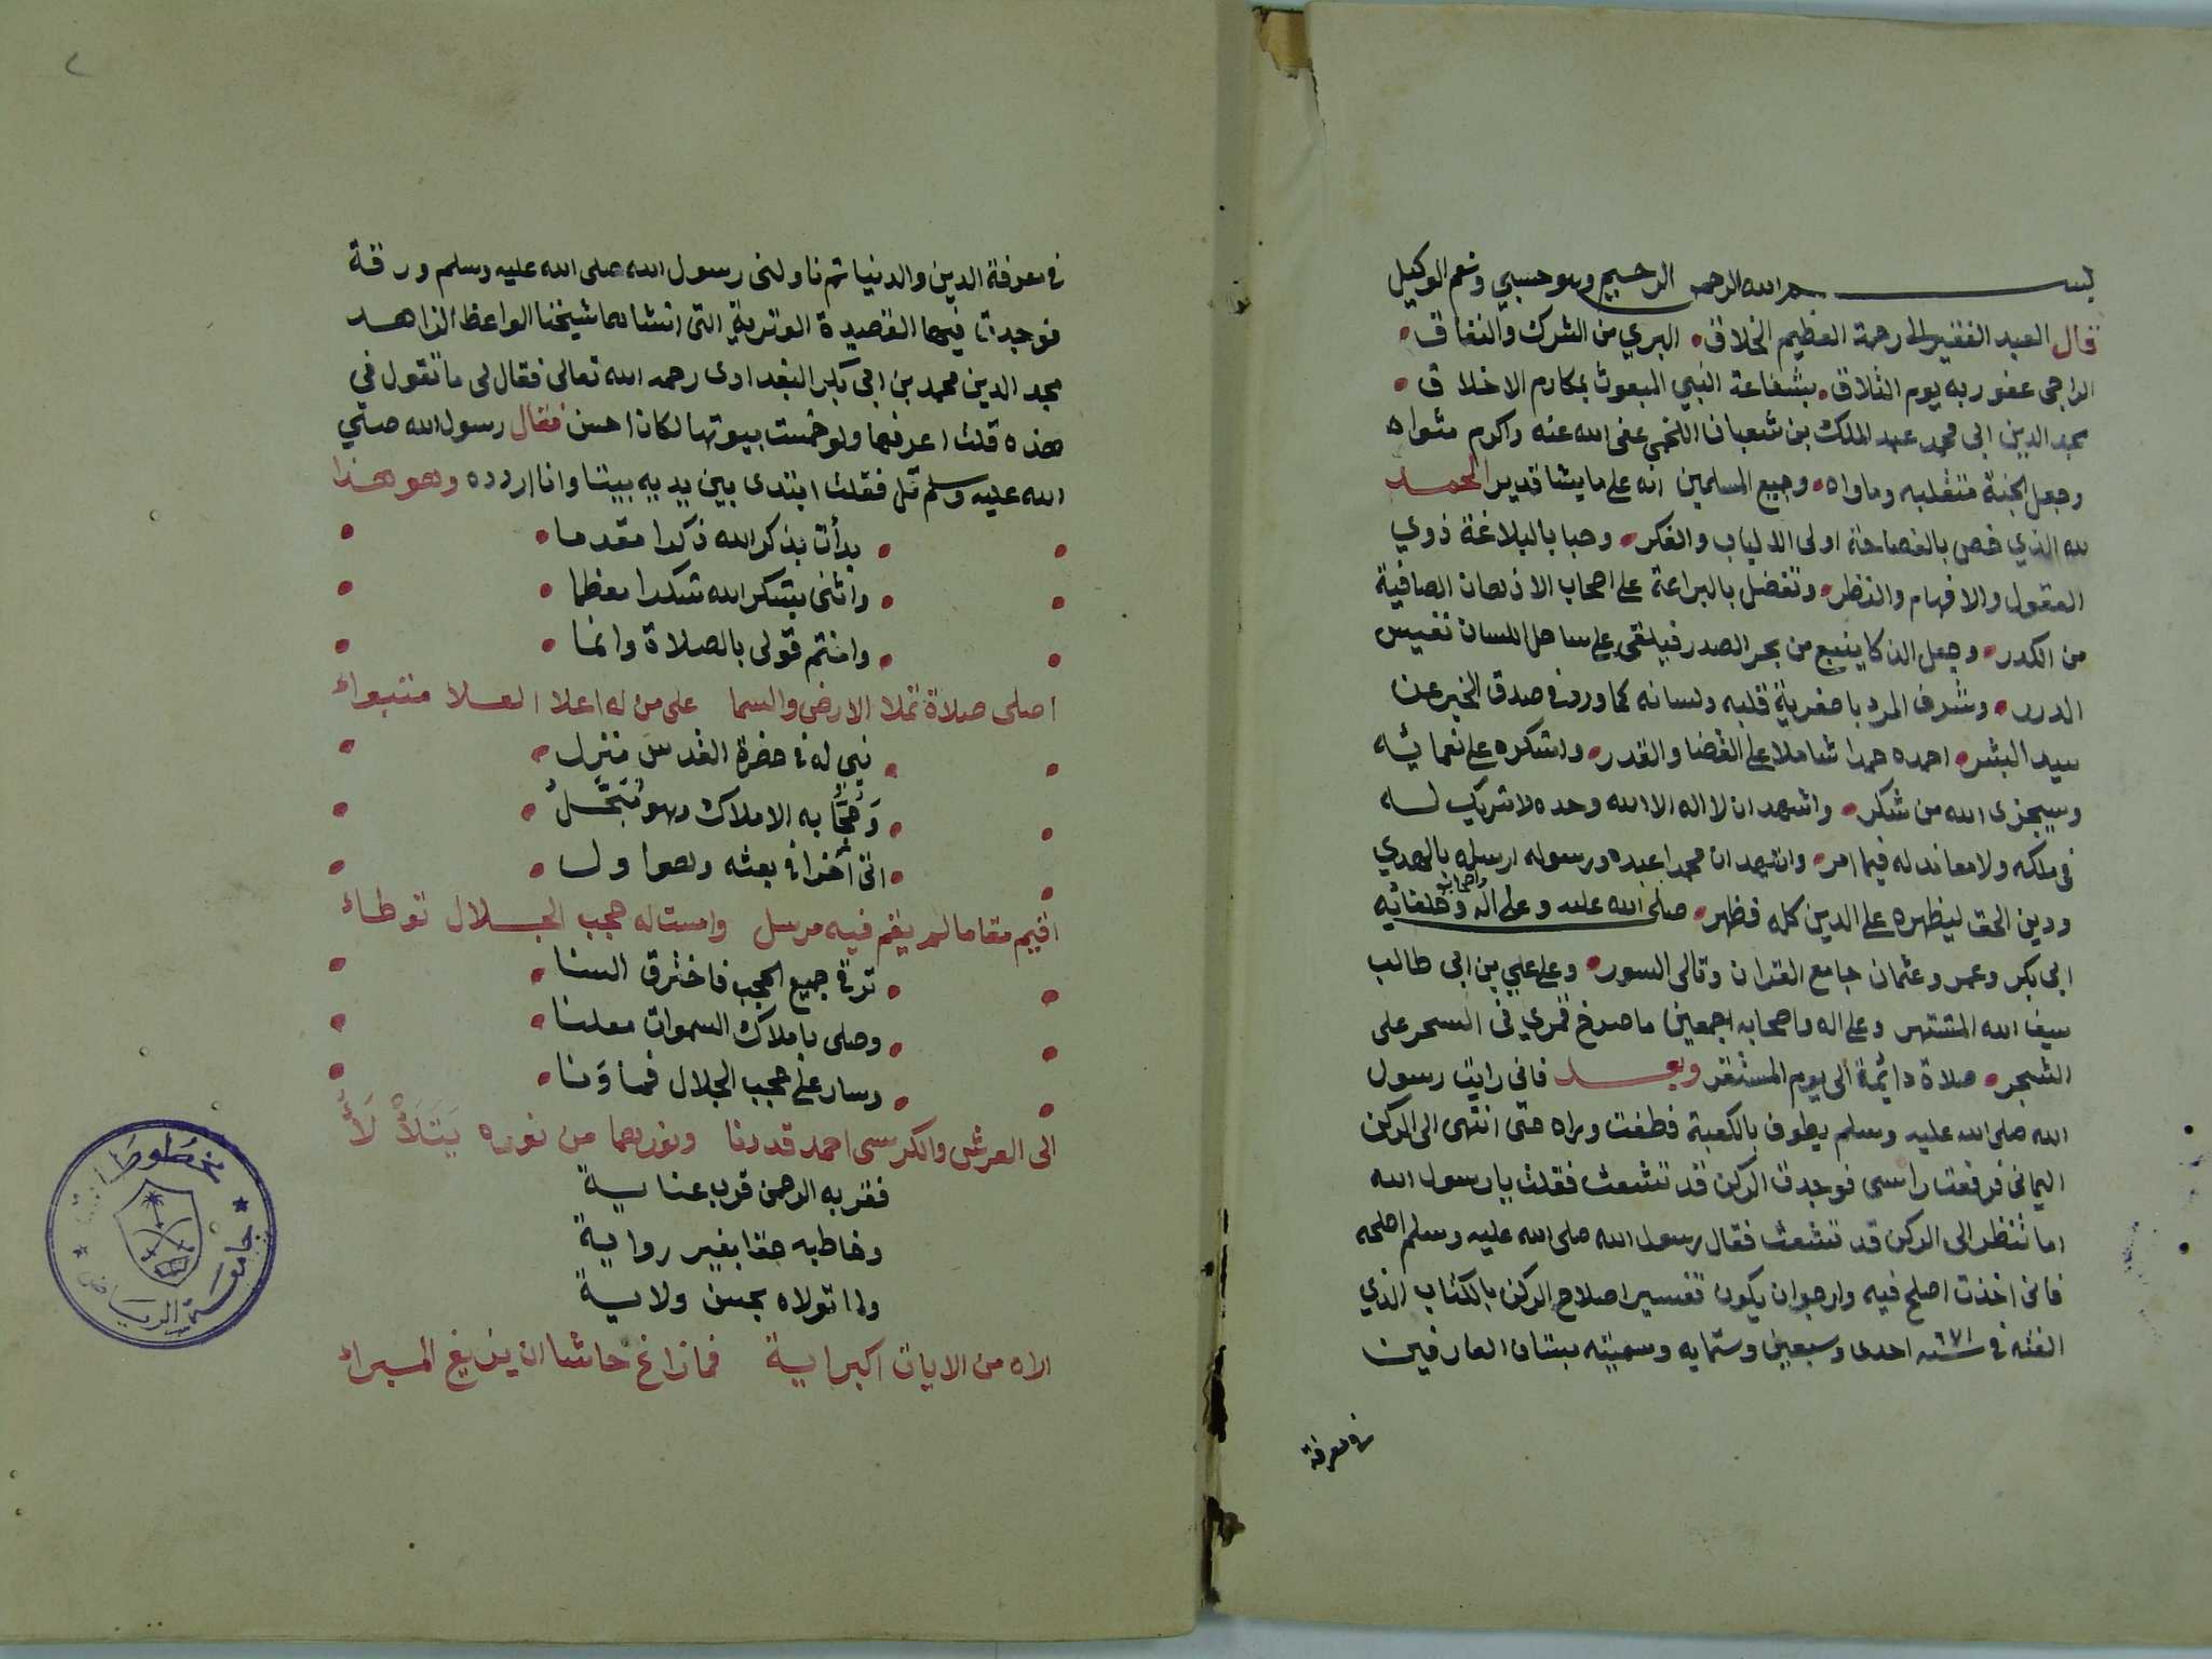 بسم الله الرحمن الرحيم وهو حسبي ونعم الوكيل
قال العبد الفقير الى رحمة العظيم الخلاق • البري من الشرك والنفاق •
الراجى عفو ربه يوم التلاق • بشفاعة النبي المبعوث بمكارم الاخلاق •
مجد الدين ابى محمد عبد الملك بن شعبان اللخمى عفى الله عنه واكرم مثواه
وجعل الجنة متقلبه وماواه • وجميع المسلمين انه على ما يشا قدير الحمد
لله الذي خص بالفصاحة اولى الالباب والفكر • وحبا بالبلاغة ذوي
العقول والافهام والنظر • وتفضل بالبراعة على اصحاب الاذهان الصافية
من الكدر • وجعل الذكا ينبع من بحر الصدر فيلقى على ساحل اللسان نفيس
الدرر • وشرف المرء باصغريه قلبه ولسانه كما ورد في صدق الخبر عن
سيد البشر • احمده حمدا شاملا على القضا والقدر • واشكره على نعمائه
وسيجزى الله من شكر • واشهد ان لا اله الا الله وحده لا شريك له
في ملكه ولا معاند له فيما امر • واشهد ان محمدا عبده ورسوله ارسله بالهدي
ودين الحق ليظهره على الدين كله فظهر • صلى الله عليه وعلى اله واصحابه وخلفائه
ابى بكر وعمر وعثمان جامع القران وتالى السور • وعلى علي بن ابى طالب
سيف الله المشتهر وعلى اله واصحابه اجمعين ما صدح قمري فى السحر على
الشجر • صلاة دائمة الى يوم المستقر وبعد فانى رايت رسول
الله صلى الله عليه وسلم يطوف بالكعبة فطفت وراه حتى انتهى الى الركن
اليمانى فرفعت راسى فوجدت الركن قد تشعث فقلت يا رسول الله
اما تنظر الى الركن قد تشعث فقال رسول الله صلى الله عليه وسلم اصلحه
فانى اخذت اصلح فيه وارجوا ان يكون تفسير اصلاح الركن بالكتاب الذي
الفته في سنة ٦٧١ احدى وسبعين وستمايه وسميته بستان العارفين
في معرفة
في معرفة الدين والدنيا ثم ناولنى رسول الله صلى الله عليه وسلم ورقة
فوجدت فيها القصيدة الوترية التى انشاها شيخنا الواعظ الزاهد
مجد الدين محمد بن ابى بكر البغدادى رحمه الله تعالى فقال لى ما تقول في
هذه قلت اعرفها ولو خمست بيوتها لكان احسن فقال رسول الله صلي
الله عليه وسلم قل فقلت ابتدى بين يديه بيتا وانا اردده وهو هذا
• بدأت بذكر الله ذكرا مقدما •
• واثنى بشكر الله شكرا معظما •
• واختم قولى بالصلاة وانما •
اصلى صلاة تملا الارض والسما على من له اعلا العلا متبواء
• نبي له في حضرة القدس منزل •
• وحجابه الاملاك وهو مبجل •
• اتى آخرا في بعثه وهو اول •
اقيم مقاما لم يقم فيه مرسل وامست له حجب الجلال توطاء
• ترقى جميع الحجب فاخترق السنا •
• وصلى باملاك السموات معلنا •
• وسار على حجب الجلال فما ونا •
الى العرش والكرسى احمد قد دنا ونورهما من نوره يتلألأ
فقربه الرحمن قرب عناية
وخاطبه حقا بغير رواية
ولما تولاه بحسن ولاية
اراه من الايات اكبر اية فما زاغ حاشا ان يزيغ المبراء
مخطوطات
جامعة الرياض